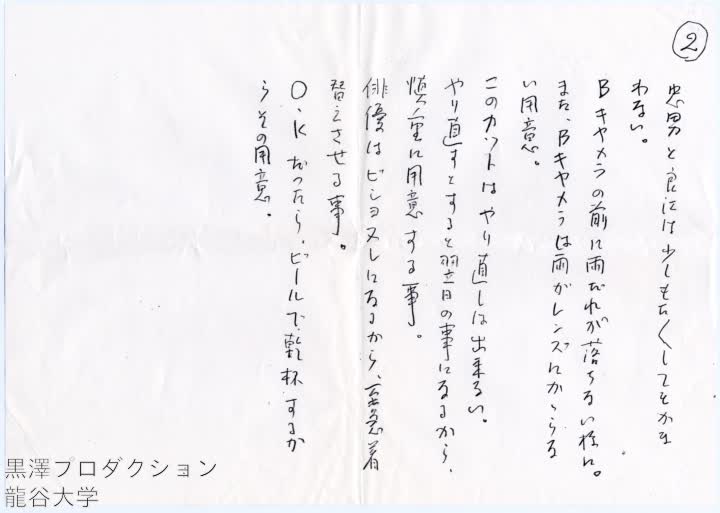 2
忠男と良江は少しもたくしてそかま
わない。
Bキャメラの前に雨だれが落ちない様に。
また、Bキャメラは雨がレンズにかゝらな
い用意。
このカットはやり直しは出来ない。
やり直すとすると翌日の事になるから、
慎重に用意する事。
俳優はビショヌレになるから、至急着
替えさせる事。
O・Kだったら、ビールで乾杯するか
らその用意。
黒澤プロダクション
龍谷大学